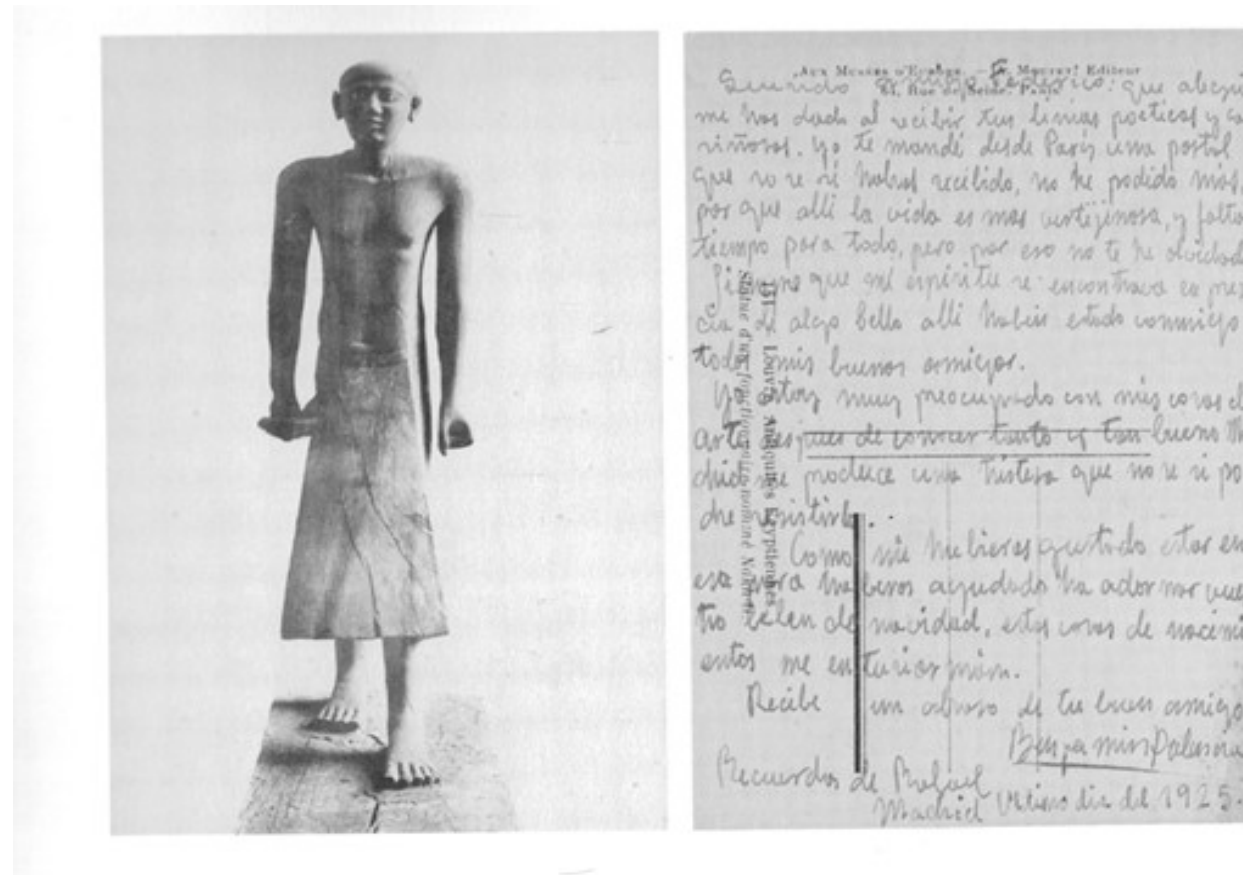 Aux Musées d'Europe. — G. Mouret Editeur
Querido amigo Federico: que alegri
51, Rue de Seine, Paris
me has dado al recibir tus lineas poeticas y ca
riñosas. Yo te mandé desde París una postal
que no se si habras recibido, no he podido mas,
por que alli la vida es mas vertijinosa, y falta
tiempo para todo, pero por eso no te he olvidad
Siempre que mi espiritu se encontrava en pres
cia de algo bello alli habeis estado conmigo
todos mis buenos amigos.
Yo estoy muy preocupado con mis cosas d
arte despues de conocer tanto y tan bueno Ma
drid me produce una tristeza que no se si po
dre resistirla.
Como me hubieras gustado estar en
esa para haberos ayudado ha adornar vues
tro belen de navidad, estas cosas de nacimi
entos me enturiasmám.
Recibe un abraso de tu buen amigo
Benjamin Palencia
Recuerdos de Rafael
Madrid Ultimo dia del 1925.
Louvre. Antiquités Egyptiennes
Statue d'un fonctionnaire nommé